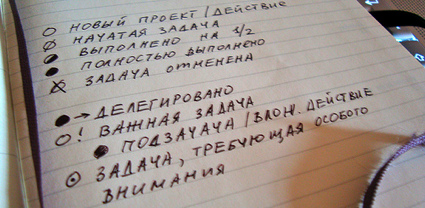 ○ НОВЫЙ ПРОЕКТ / ДЕЙСТВИЕ
∅ НАЧАТАЯ ЗАДАЧА
◑ ВЫПОЛНЕНО НА 1/2
● ПОЛНОСТЬЮ ВЫПОЛНЕНО
⊗ ЗАДАЧА ОТМЕНЕНА
●→ ДЕЛЕГИРОВАНО
○! ВАЖНАЯ ЗАДАЧА
● ПОДЗАЧАЧА / ВЛОЖ. ДЕЙСТВИЕ
⊙ ЗАДАЧА, ТРЕБУЮЩАЯ ОСОБОГО
ВНИМАНИЯ